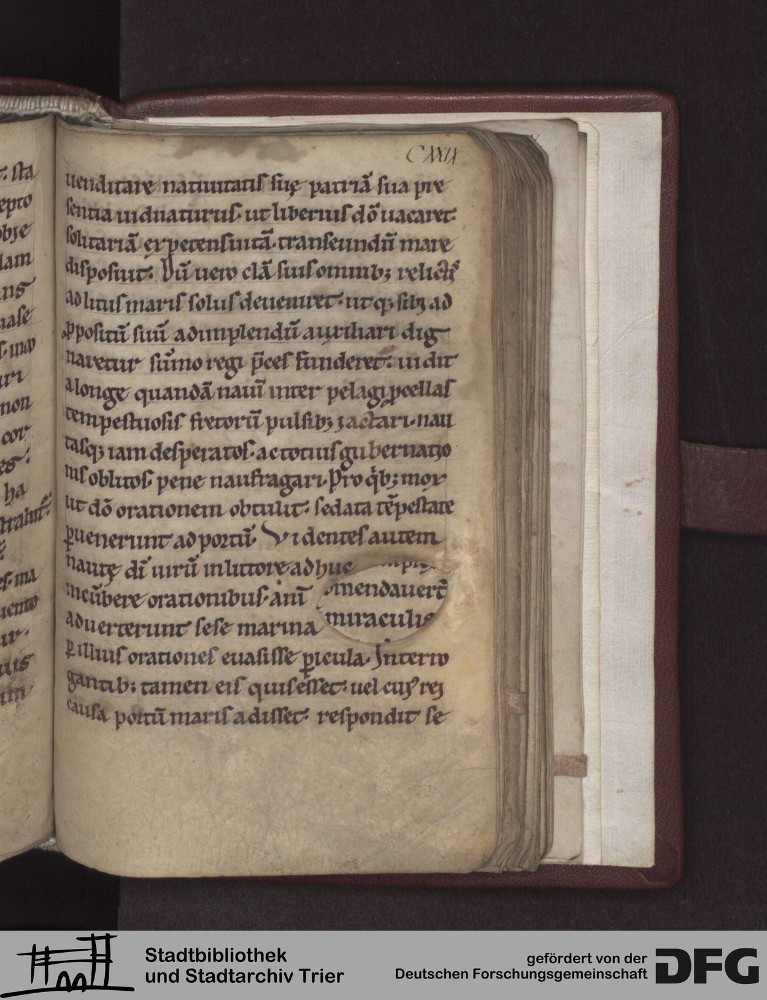 uenditare natiuitatis sue̜ patriā sua pre
sentia uiduaturus· ut liberius dō uacaret·
solitariā expetens uitā· transeundū mare
disposuit· Dū uero clā suis omnib; relictis
ad litus maris solus deueniret· utq; sibi ad
ꝓpositū suū adimplendū auxiliari dig
naretur sūmo regi p̄ces funderet· uidit
a longe quandā nauī inter pelagi ꝓcellas
tempestuosis fretorū pulsib; iactari· nau
tasq; iam desperatos· ac totius gubernatio
nis oblitos· pene naufragari· Pro qͥb; mox
ut dō orationem obtulit· sedata tēpestate
ꝑuenerunt ad portū· Videntes autem
naute̜ dī uirū in littore adhuc
incūbere orationibus· anī mendauert̄
aduerterunt sese marina miraculis
ꝑ illius orationes euasisse ꝑicula· Interro
gantib; tamen eis quis esset· uel cuiꝰ rei
causa portū maris adisset· respondit se
Stadtbibliothek
und Stadtarchiv Trier
gefördert von der
Deutschen Forschungsgemeinschaft
DFG